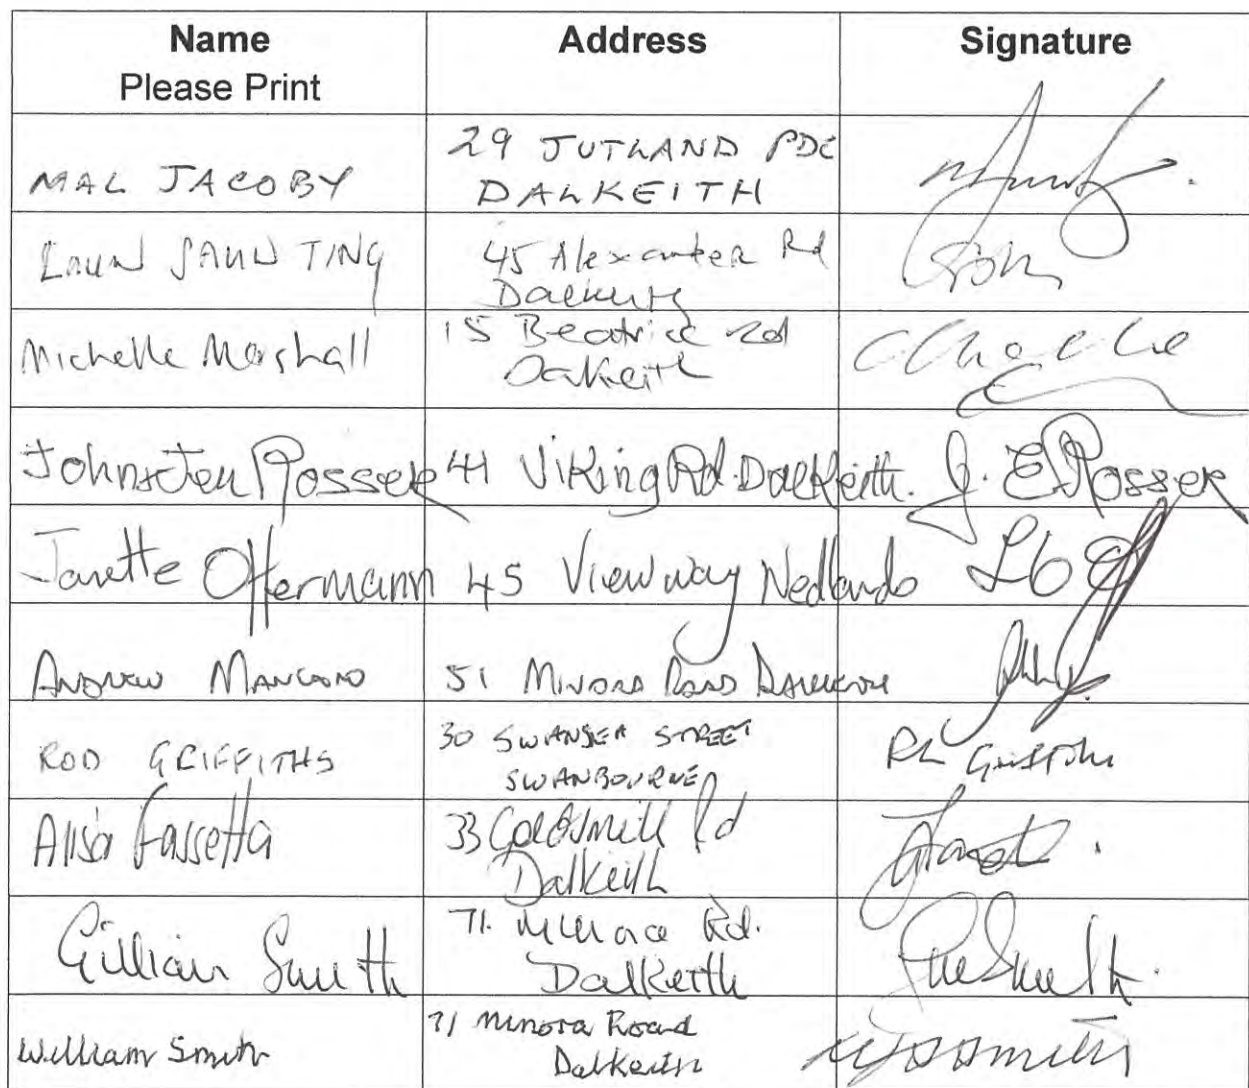 Name Address Signature
Please Print
MAL JACOBY 29 JUTLAND PDE
DALKEITH
SAUN TING 45 Alexander Rd
Dalkeith
Michelle Marshall 15 Beatrice Rd
Dalkeith
John & Jen Rosser 41 Viking Rd. Dalkeith. J. E Rosser
Janette Offermann 45 Viewway Nedlands
ANDREW 51 MINORA ROAD DALKEITH
ROD GRIFFITHS 30 SWANSEA STREET
SWANBOURNE
Alisa Fassetta 33 Goldsmith Rd
Dalkeith
Gillian Smith 71. Minora Rd.
Dalkeith
William Smith 71 Minora Road
Dalkeith